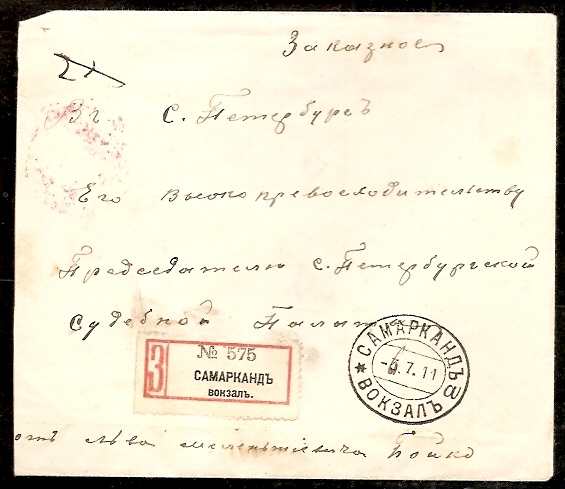 Заказное
21
Въ г. С. Петербургъ
Его Высокопревосходительству
Председателю С. Петербургской
Судебной Палаты
З
№ 575
САМАРКАНДЪ
вокзалъ.
САМАРКАНДЪ
7.11
ВОКЗАЛЪ
отъ Льва Мелентьевича Бойко